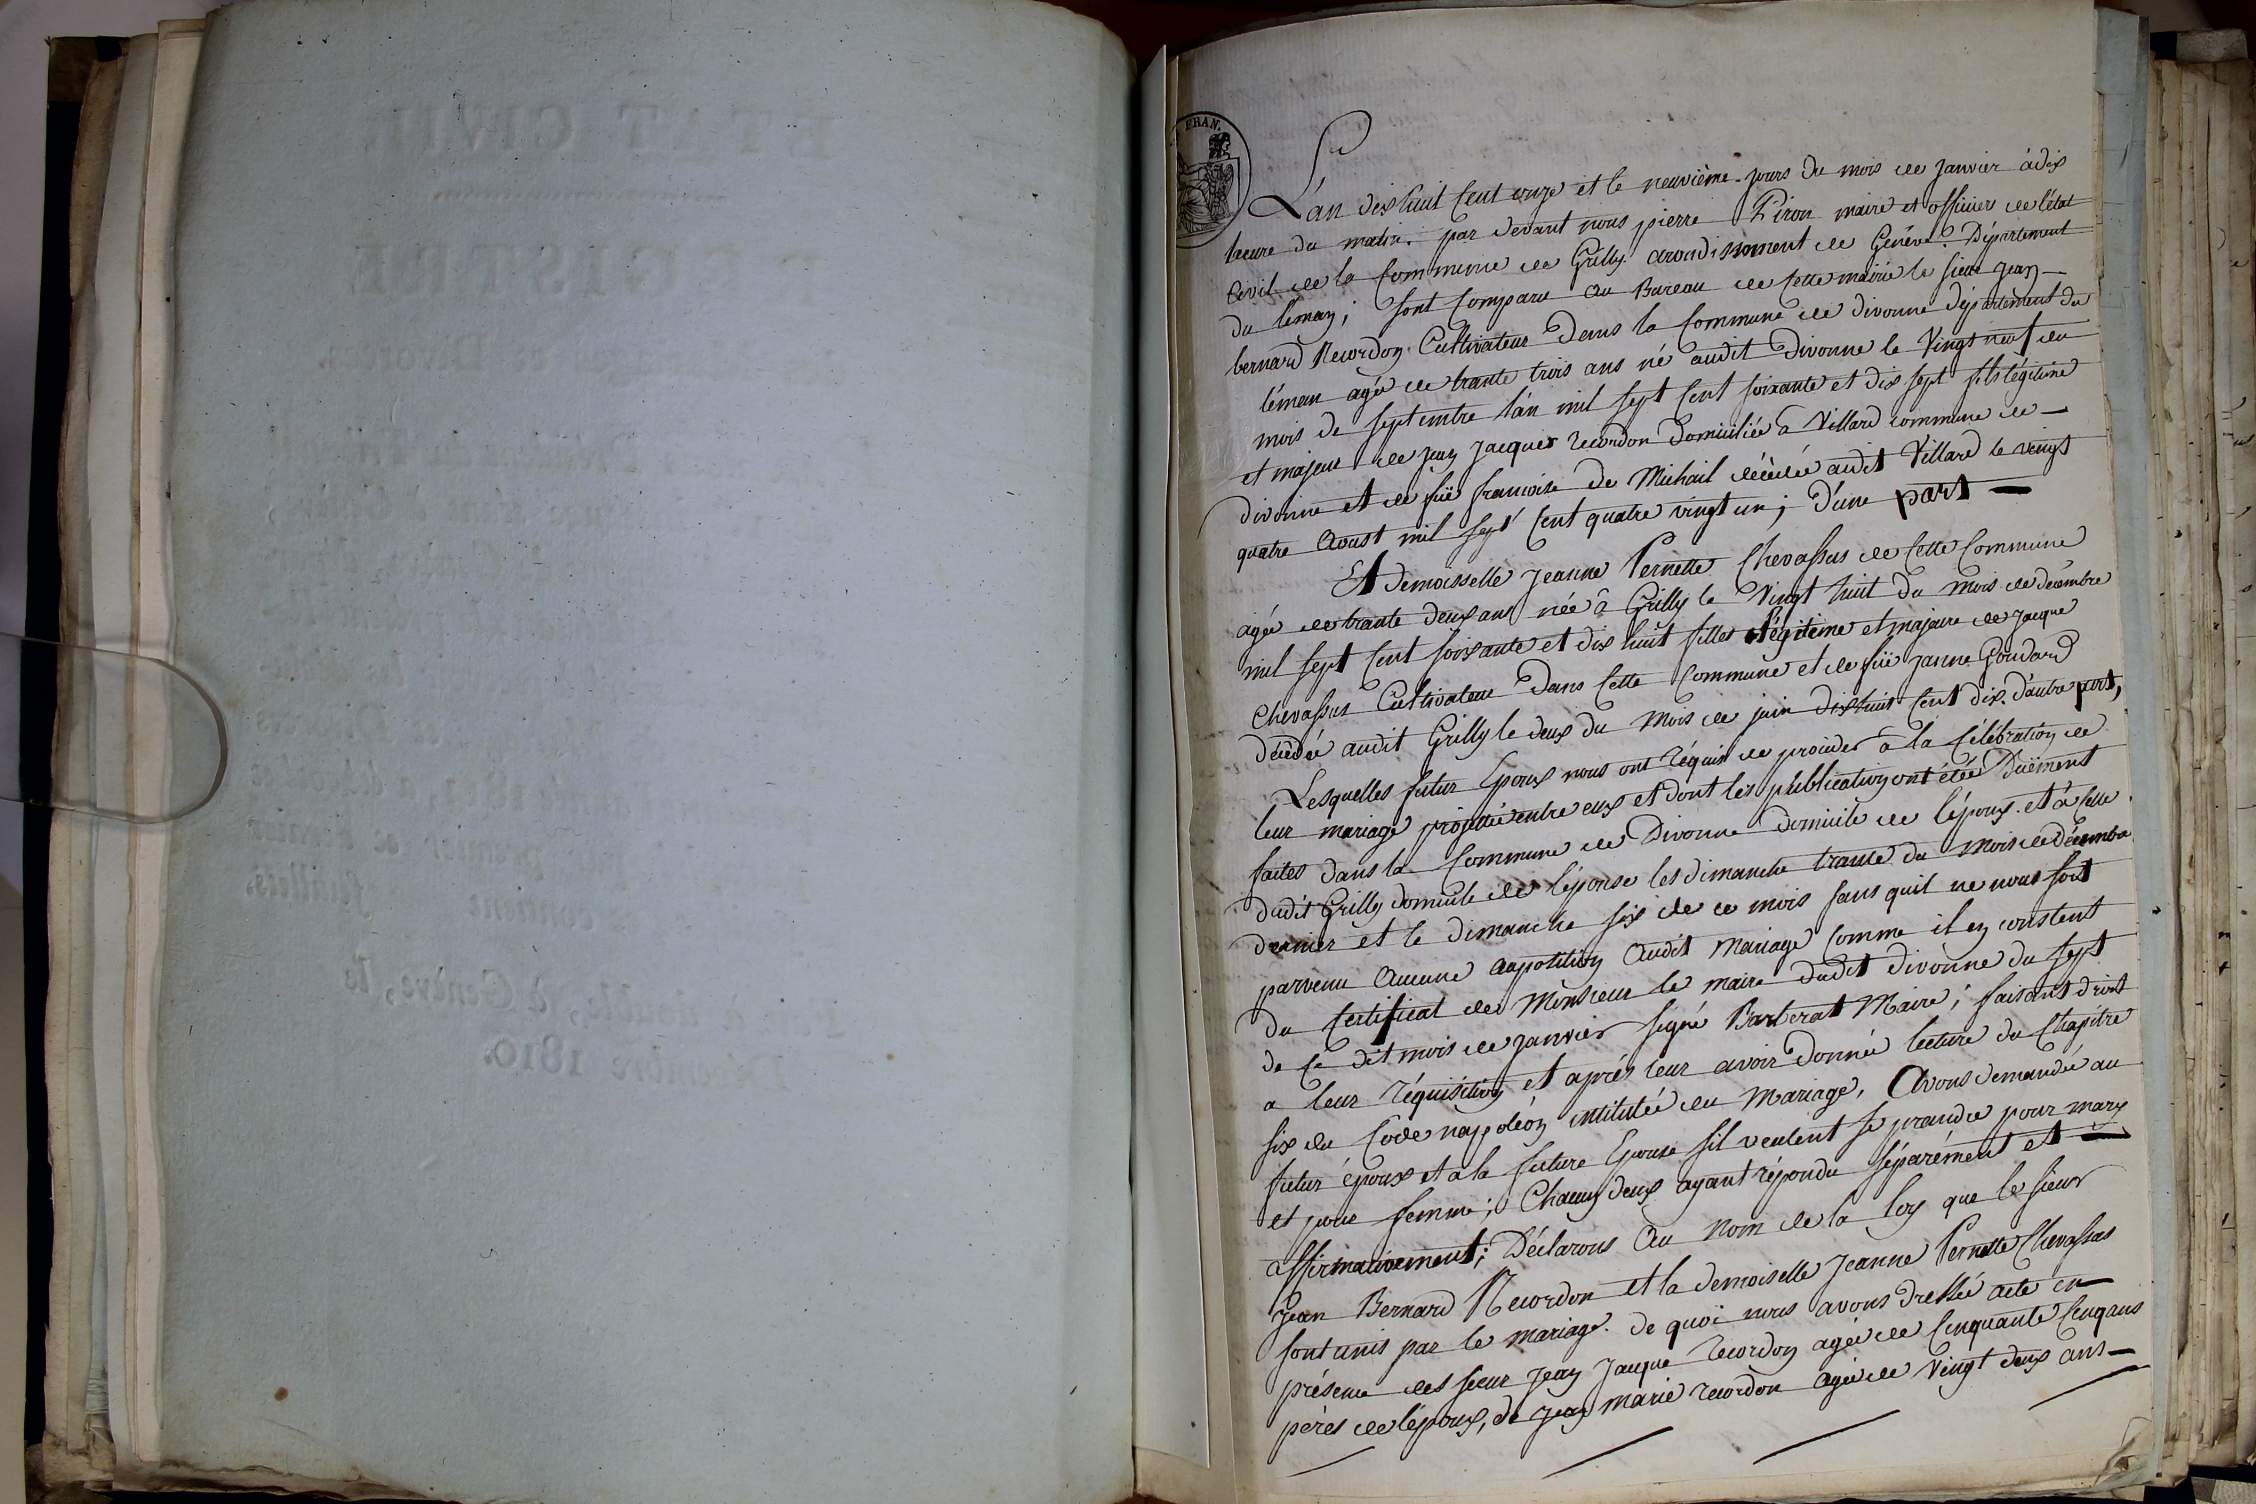 FRAN.
L'an dix huit cent onze et le neuvième jours du mois de janvier à dix
heure du matin. par devant nous pierre Piron maire et officier de l'état
Civil de la Commune de Grilly arondissement de Genève. Département
du léman; sont Comparu au Bureau de cette mairie le sieur jean
bernard Recordon Cultivateur Dans la Commune de divonne département du
léman agée de trante trois ans né audit Divonne le Vingt neuf du
mois de septembre l'an mil sept cent soixante et dix sept fils légitime
et majeur de jean jacques recordon Domiciliée à Villard commune de
divonne et de füe francoise de Michail décédée audit Villard le vingt
quatre Aoust mil sept cent quatre vingt un; D'une part
Et demoisselle jeanne Pernette Chevassus de Cette Commune
agée de trante deux ans née à Grilly le Vingt huit du mois de décembre
mil sept cent soixante et dix huit filles légiteme et majeure de jacque
Chevassus Cultivateur Dans Cette Commune et de füe janne Goudard
décédée audit Grilly le deux du Mois de juin dixhuit cent dix. d'autre part,
Lesquelles futur Epoux nous ont réquis de procéder à la Célébration de
leur mariage projettée entre eux et dont les publication ont étée Duëment
faites Dans la Commune de Divonne domicile de l'époux. et à celle
dudit Grilly domicile de l'épouse les dimanche trante du mois de décembre
dernier et le dimanche six de ce mois sans quil ne nous soit
parvenu Aucune aupotition Audit Mariage Comme il en constent
du Certificat de Monsieur le maire dudit divonne du sept
de ce dit mois de janvier signé Barberat Maire; faisant droit
a leur réquisition et après leur avoir Donnée lecture du Chapitre
six du Code nappoléon intitulée du Mariage, Avons demandée au
futur époux et à la future Epouse sil veulent se prandre pour mary
et pour femme; Chacun deux ayant répondu séparément et
affirmativement; Déclarons Au nom de la loy que le sieur
Jean Bernard Recordon et la demoiselle Jeanne Pernette Chevassus
sont unis par le mariage. de quoi nous avons dressée acte en
présence des sieur Jean Jacque recordon agée de Cinquante Cinq ans
pères de l'époux, de jean marie recordon agée de Vingt deux ans